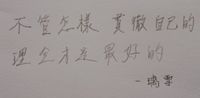 不管怎樣 貫徹自己的
理念才是最好的
-瑞雲